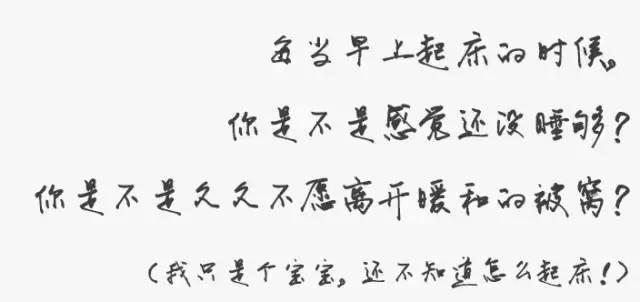 每当早上起床的时候，
你是不是感觉还没睡够？
你是不是久久不愿离开暖和的被窝？
（我只是个宝宝，还不知道怎么起床！）